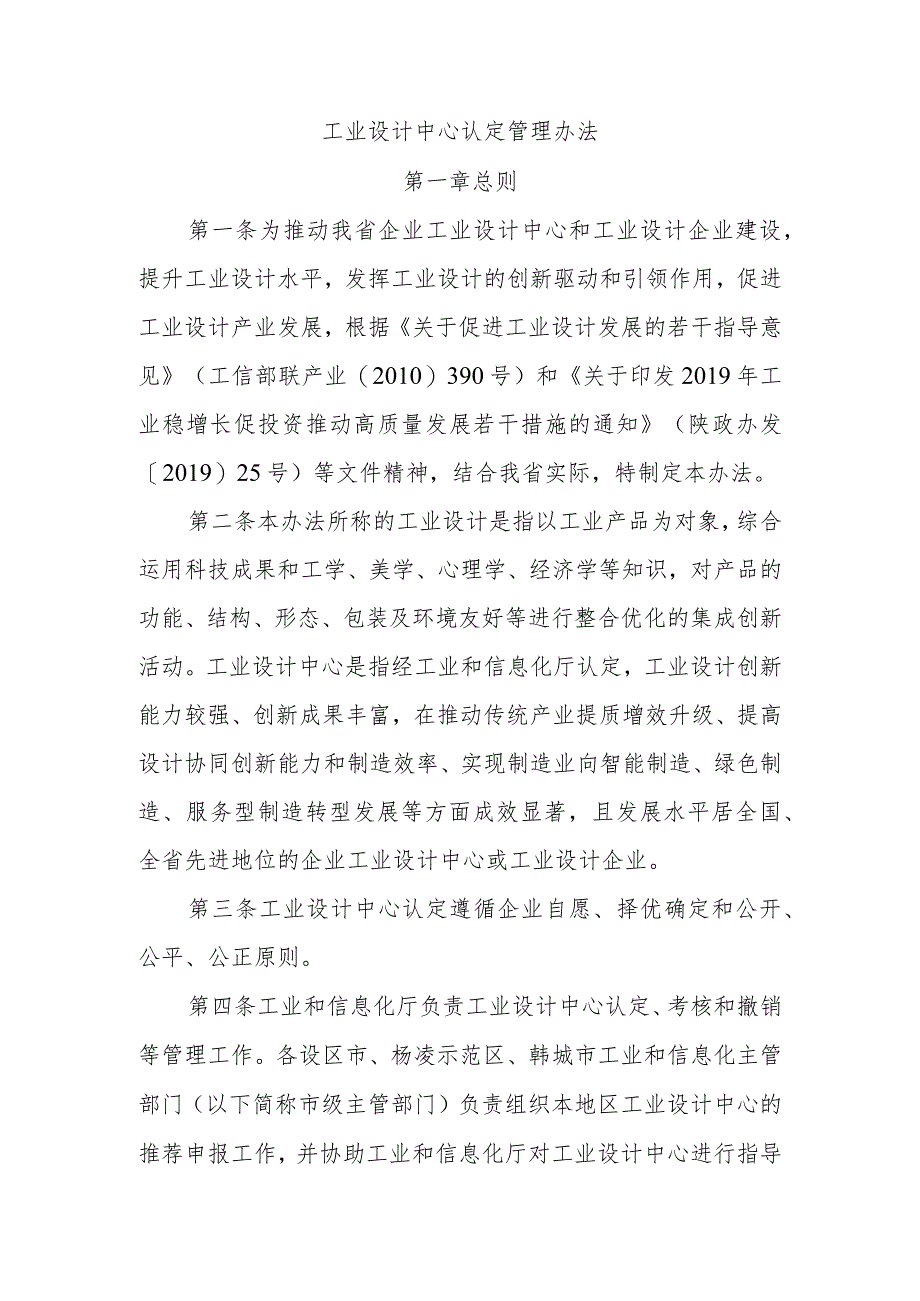 工业设计中心认定管理办法
第一章总则
第一条为推动我省企业工业设计中心和工业设计企业建设，
提升工业设计水平，发挥工业设计的创新驱动和引领作用，促进
工业设计产业发展，根据《关于促进工业设计发展的若干指导意
见》（工信部联产业（2010）390 号）和《关于印发 2019 年工
业稳增长促投资推动高质量发展若干措施的通知》（陕政办发
〔2019）25 号）等文件精神，结合我省实际，特制定本办法。
第二条本办法所称的工业设计是指以工业产品为对象，综合
运用科技成果和工学、美学、心理学、经济学等知识，对产品的
功能、结构、形态、包装及环境友好等进行整合优化的集成创新
活动。工业设计中心是指经工业和信息化厅认定，工业设计创新
能力较强、创新成果丰富，在推动传统产业提质增效升级、提高
设计协同创新能力和制造效率、实现制造业向智能制造、绿色制
造、服务型制造转型发展等方面成效显著，且发展水平居全国、
全省先进地位的企业工业设计中心或工业设计企业。
第三条工业设计中心认定遵循企业自愿、择优确定和公开、
公平、公正原则。
第四条工业和信息化厅负责工业设计中心认定、考核和撤销
等管理工作。各设区市、杨凌示范区、韩城市工业和信息化主管
部门（以下简称市级主管部门）负责组织本地区工业设计中心的
推荐申报工作，并协助工业和信息化厅对工业设计中心进行指导